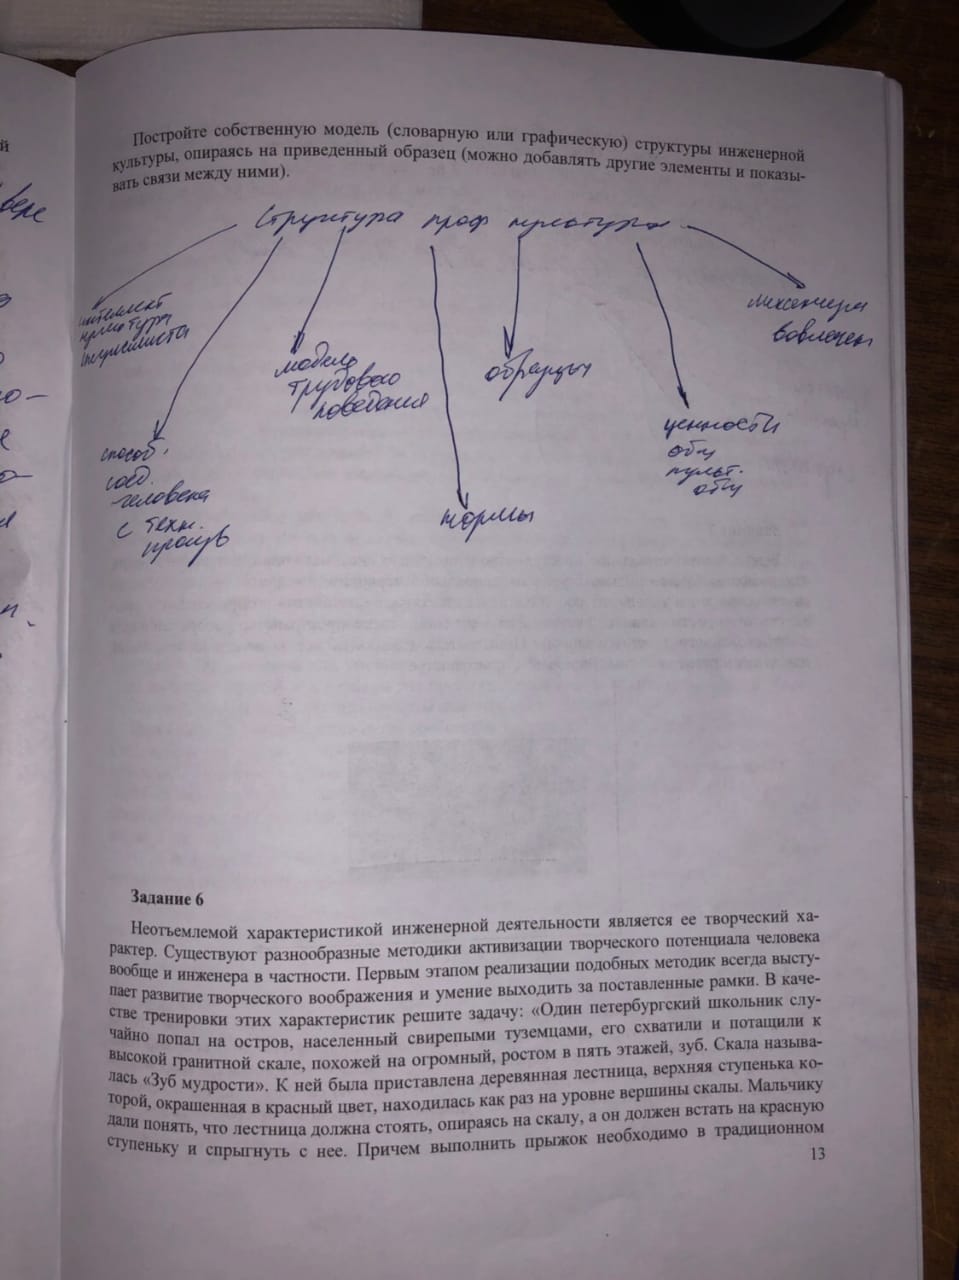 й
Постройте собственную модель (словарную или графическую) структуры инженерной
культуры, опираясь на приведенный образец (можно добавлять другие элементы и показы-
вать связи между ними).
вере
Структура проф культуры
интеллект
культура
специалиста
способ.
соед.
человека
с техн.
произв
модель
трудового
поведения
нормы
образцы
ценности
общ
культ.
общ
механизм
вовлечен
Задание 6
Неотъемлемой характеристикой инженерной деятельности является ее творческий ха-
рактер. Существуют разнообразные методики активизации творческого потенциала человека
вообще и инженера в частности. Первым этапом реализации подобных методик всегда высту-
пает развитие творческого воображения и умение выходить за поставленные рамки. В каче-
стве тренировки этих характеристик решите задачу: «Один петербургский школьник слу-
чайно попал на остров, населенный свирепыми туземцами, его схватили и потащили к
высокой гранитной скале, похожей на огромный, ростом в пять этажей, зуб. Скала называ-
лась «Зуб мудрости». К ней была приставлена деревянная лестница, верхняя ступенька ко-
торой, окрашенная в красный цвет, находилась как раз на уровне вершины скалы. Мальчику
дали понять, что лестница должна стоять, опираясь на скалу, а он должен встать на красную
ступеньку и спрыгнуть с нее. Причем выполнить прыжок необходимо в традиционном
13